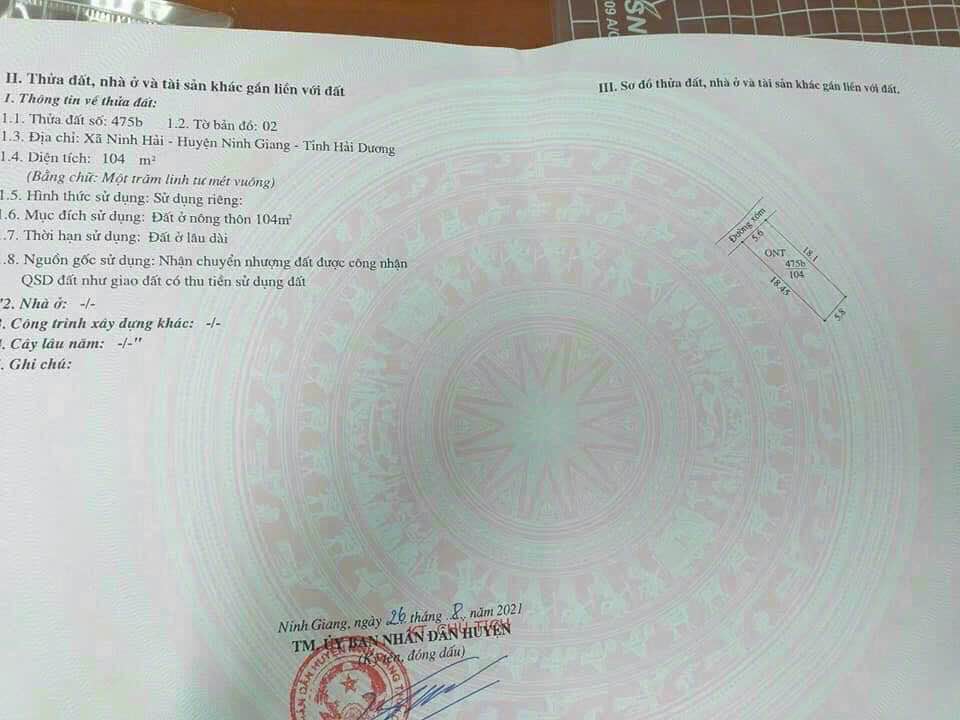 II. Thửa đất, nhà ở và tài sản khác gắn liền với đất
1. Thông tin về thửa đất:
1.1. Thửa đất số: 475b 1.2. Tờ bản đồ: 02
1.3. Địa chỉ: Xã Ninh Hải - Huyện Ninh Giang - Tỉnh Hải Dương
1.4. Diện tích: 104 m²
(Bằng chữ: Một trăm linh tư mét vuông)
1.5. Hình thức sử dụng: Sử dụng riêng:
1.6. Mục đích sử dụng: Đất ở nông thôn 104m²
.7. Thời hạn sử dụng: Đất ở lâu dài
.8. Nguồn gốc sử dụng: Nhận chuyển nhượng đất được công nhận
QSD đất như giao đất có thu tiền sử dụng đất
"2. Nhà ở: -/-
. Công trình xây dựng khác: -/-
. Cây lâu năm: -/-"
. Ghi chú:
III. Sơ đồ thửa đất, nhà ở và tài sản khác gắn liền với đất.
Đường xóm
5.6
18.1
ONT
475b
104
18.45
5.8
Ninh Giang, ngày 26 tháng .8. năm 2021
TM. ỦY BAN NHÂN DÂN HUYỆN
KT. CHỦ TỊCH
(Ký tên, đóng dấu)